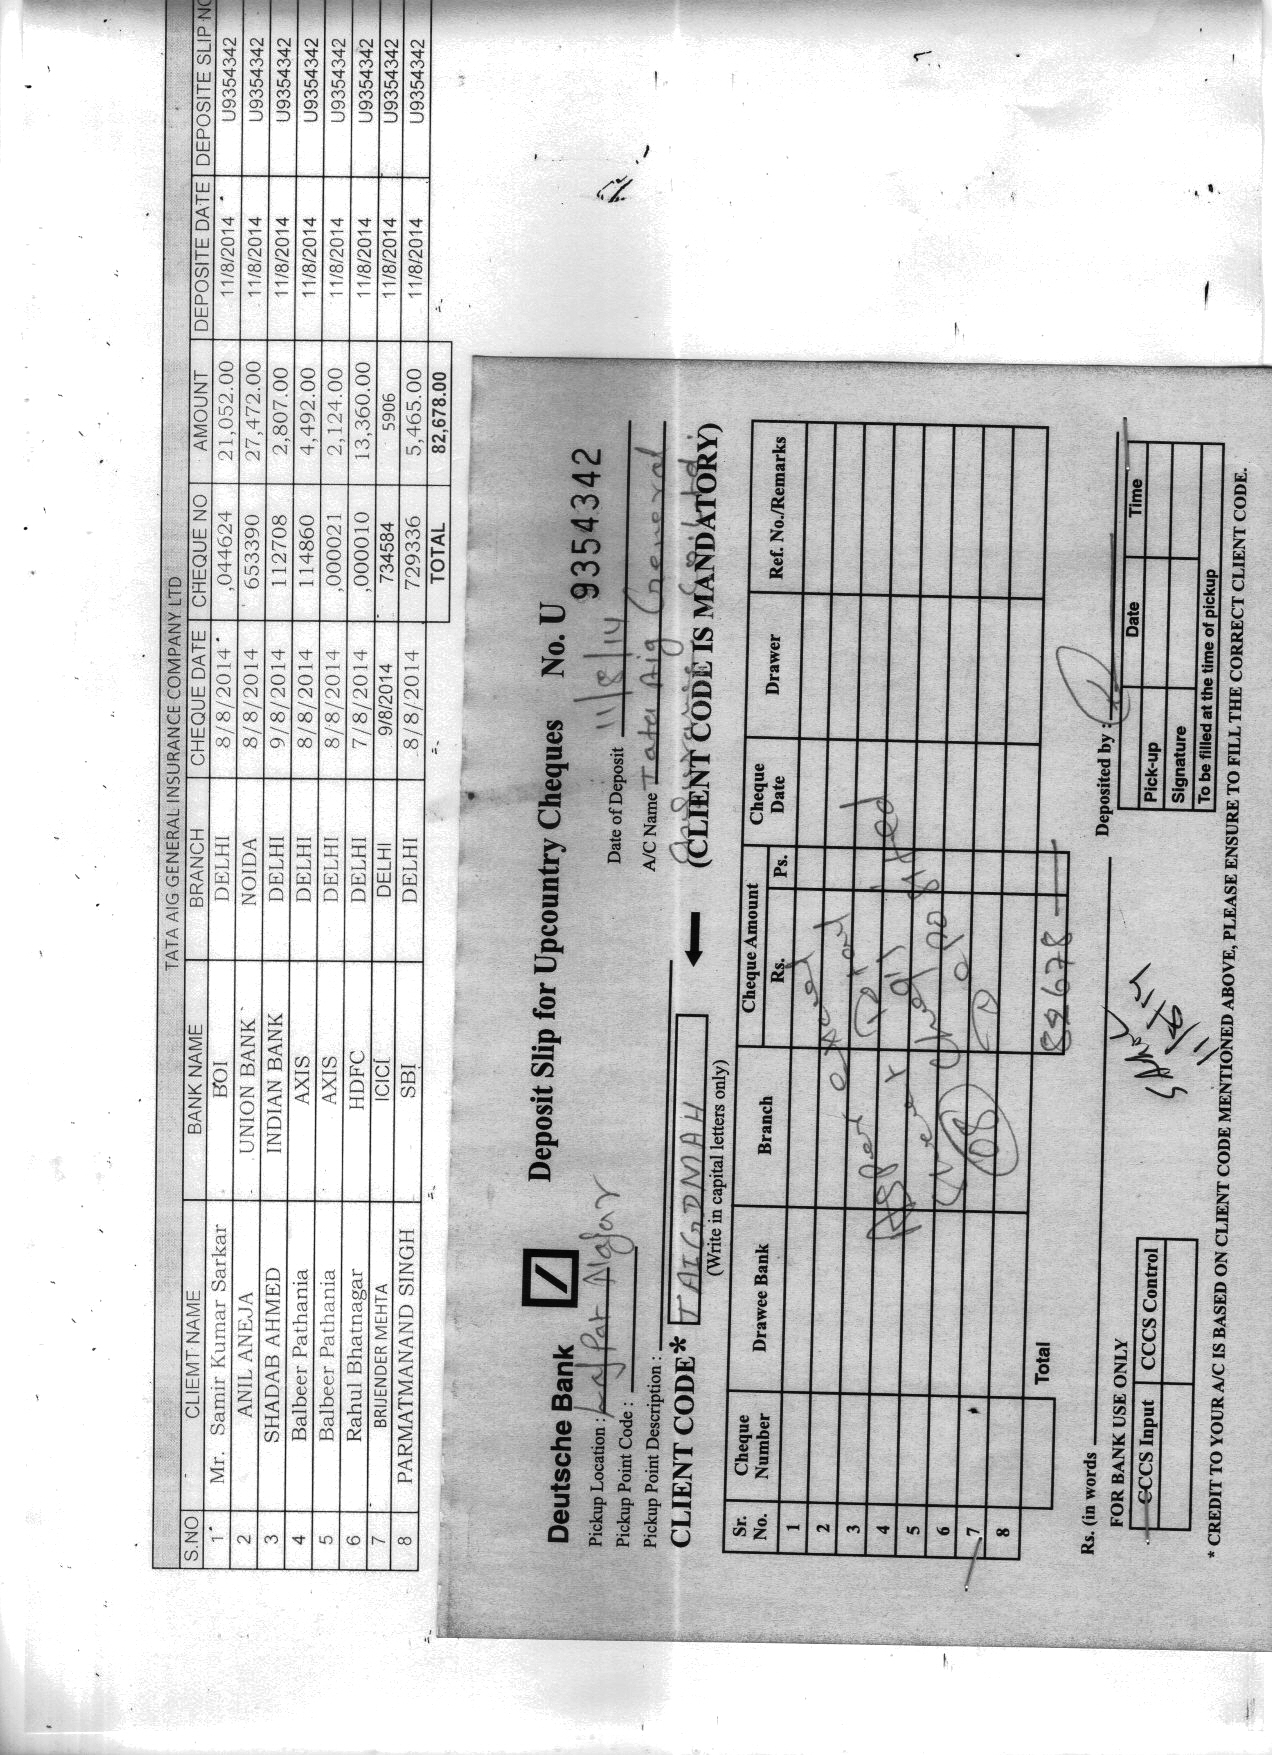 TATA AIG GENERAL INSURANCE COMPANY LTD
S.NO CLIEMT NAME BANK NAME BRANCH CHEQUE DATE CHEQUE NO AMOUNT DEPOSITE DATE DEPOSITE SLIP NO
1 Mr. Samir Kumar Sarkar BOI DELHI 8/8/2014 ,044624 21,052.00 11/8/2014 U9354342
2 ANIL ANEJA UNION BANK NOIDA 8/8/2014 653390 27,472.00 11/8/2014 U9354342
3 SHADAB AHMED INDIAN BANK DELHI 9/8/2014 112708 2,807.00 11/8/2014 U9354342
4 Balbeer Pathania AXIS DELHI 8/8/2014 114860 4,492.00 11/8/2014 U9354342
5 Balbeer Pathania AXIS DELHI 8/8/2014 ,000021 2,124.00 11/8/2014 U9354342
6 Rahul Bhatnagar HDFC DELHI 7/8/2014 ,000010 13,360.00 11/8/2014 U9354342
7 BRIJENDER MEHTA ICICI DELHI 9/8/2014 734584 5906 11/8/2014 U9354342
8 PARMATMANAND SINGH SBI DELHI 8/8/2014 729336 5,465.00 11/8/2014 U9354342
TOTAL 82,678.00
Deutsche Bank Deposit Slip for Upcountry Cheques No. U 9354342
Pickup Location : Lajpat Nagar Date of Deposit 11/8/14
Pickup Point Code :
Pickup Point Description : A/C Name Tata Aig General
Insurance Co. Ltd.
CLIENT CODE* TAIGDMAH (CLIENT CODE IS MANDATORY)
(Write in capital letters only)
Sr. No. Cheque Number Drawee Bank Branch Cheque Amount Rs. Ps. Cheque Date Drawer Ref. No./Remarks
1
2
3
4
5
6
7
8
08
Total 82678
Rs. (in words Deposited by :
FOR BANK USE ONLY
CCCS Input CCCS Control
Pick-up Date Time
Signature
To be filled at the time of pickup
* CREDIT TO YOUR A/C IS BASED ON CLIENT CODE MENTIONED ABOVE, PLEASE ENSURE TO FILL THE CORRECT CLIENT CODE.